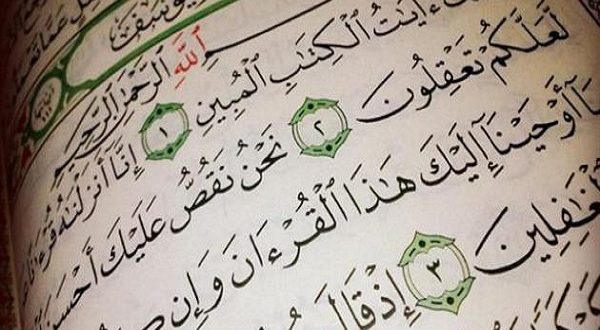 يُوسُفَ
ٱللَّهِ ٱلرَّحْمَٰنِ ٱلرَّحِيمِ
ءَايَٰتُ ٱلْكِتَٰبِ ٱلْمُبِينِ ١ إِنَّآ أَنزَلْنَٰهُ قُرْءَٰنًا
لَّعَلَّكُمْ تَعْقِلُونَ ٢ نَحْنُ نَقُصُّ عَلَيْكَ أَحْسَنَ
مَآ أَوْحَيْنَآ إِلَيْكَ هَٰذَا ٱلْقُرْءَانَ وَإِن
ٱلْغَٰفِلِينَ ٣ إِذْ قَالَ